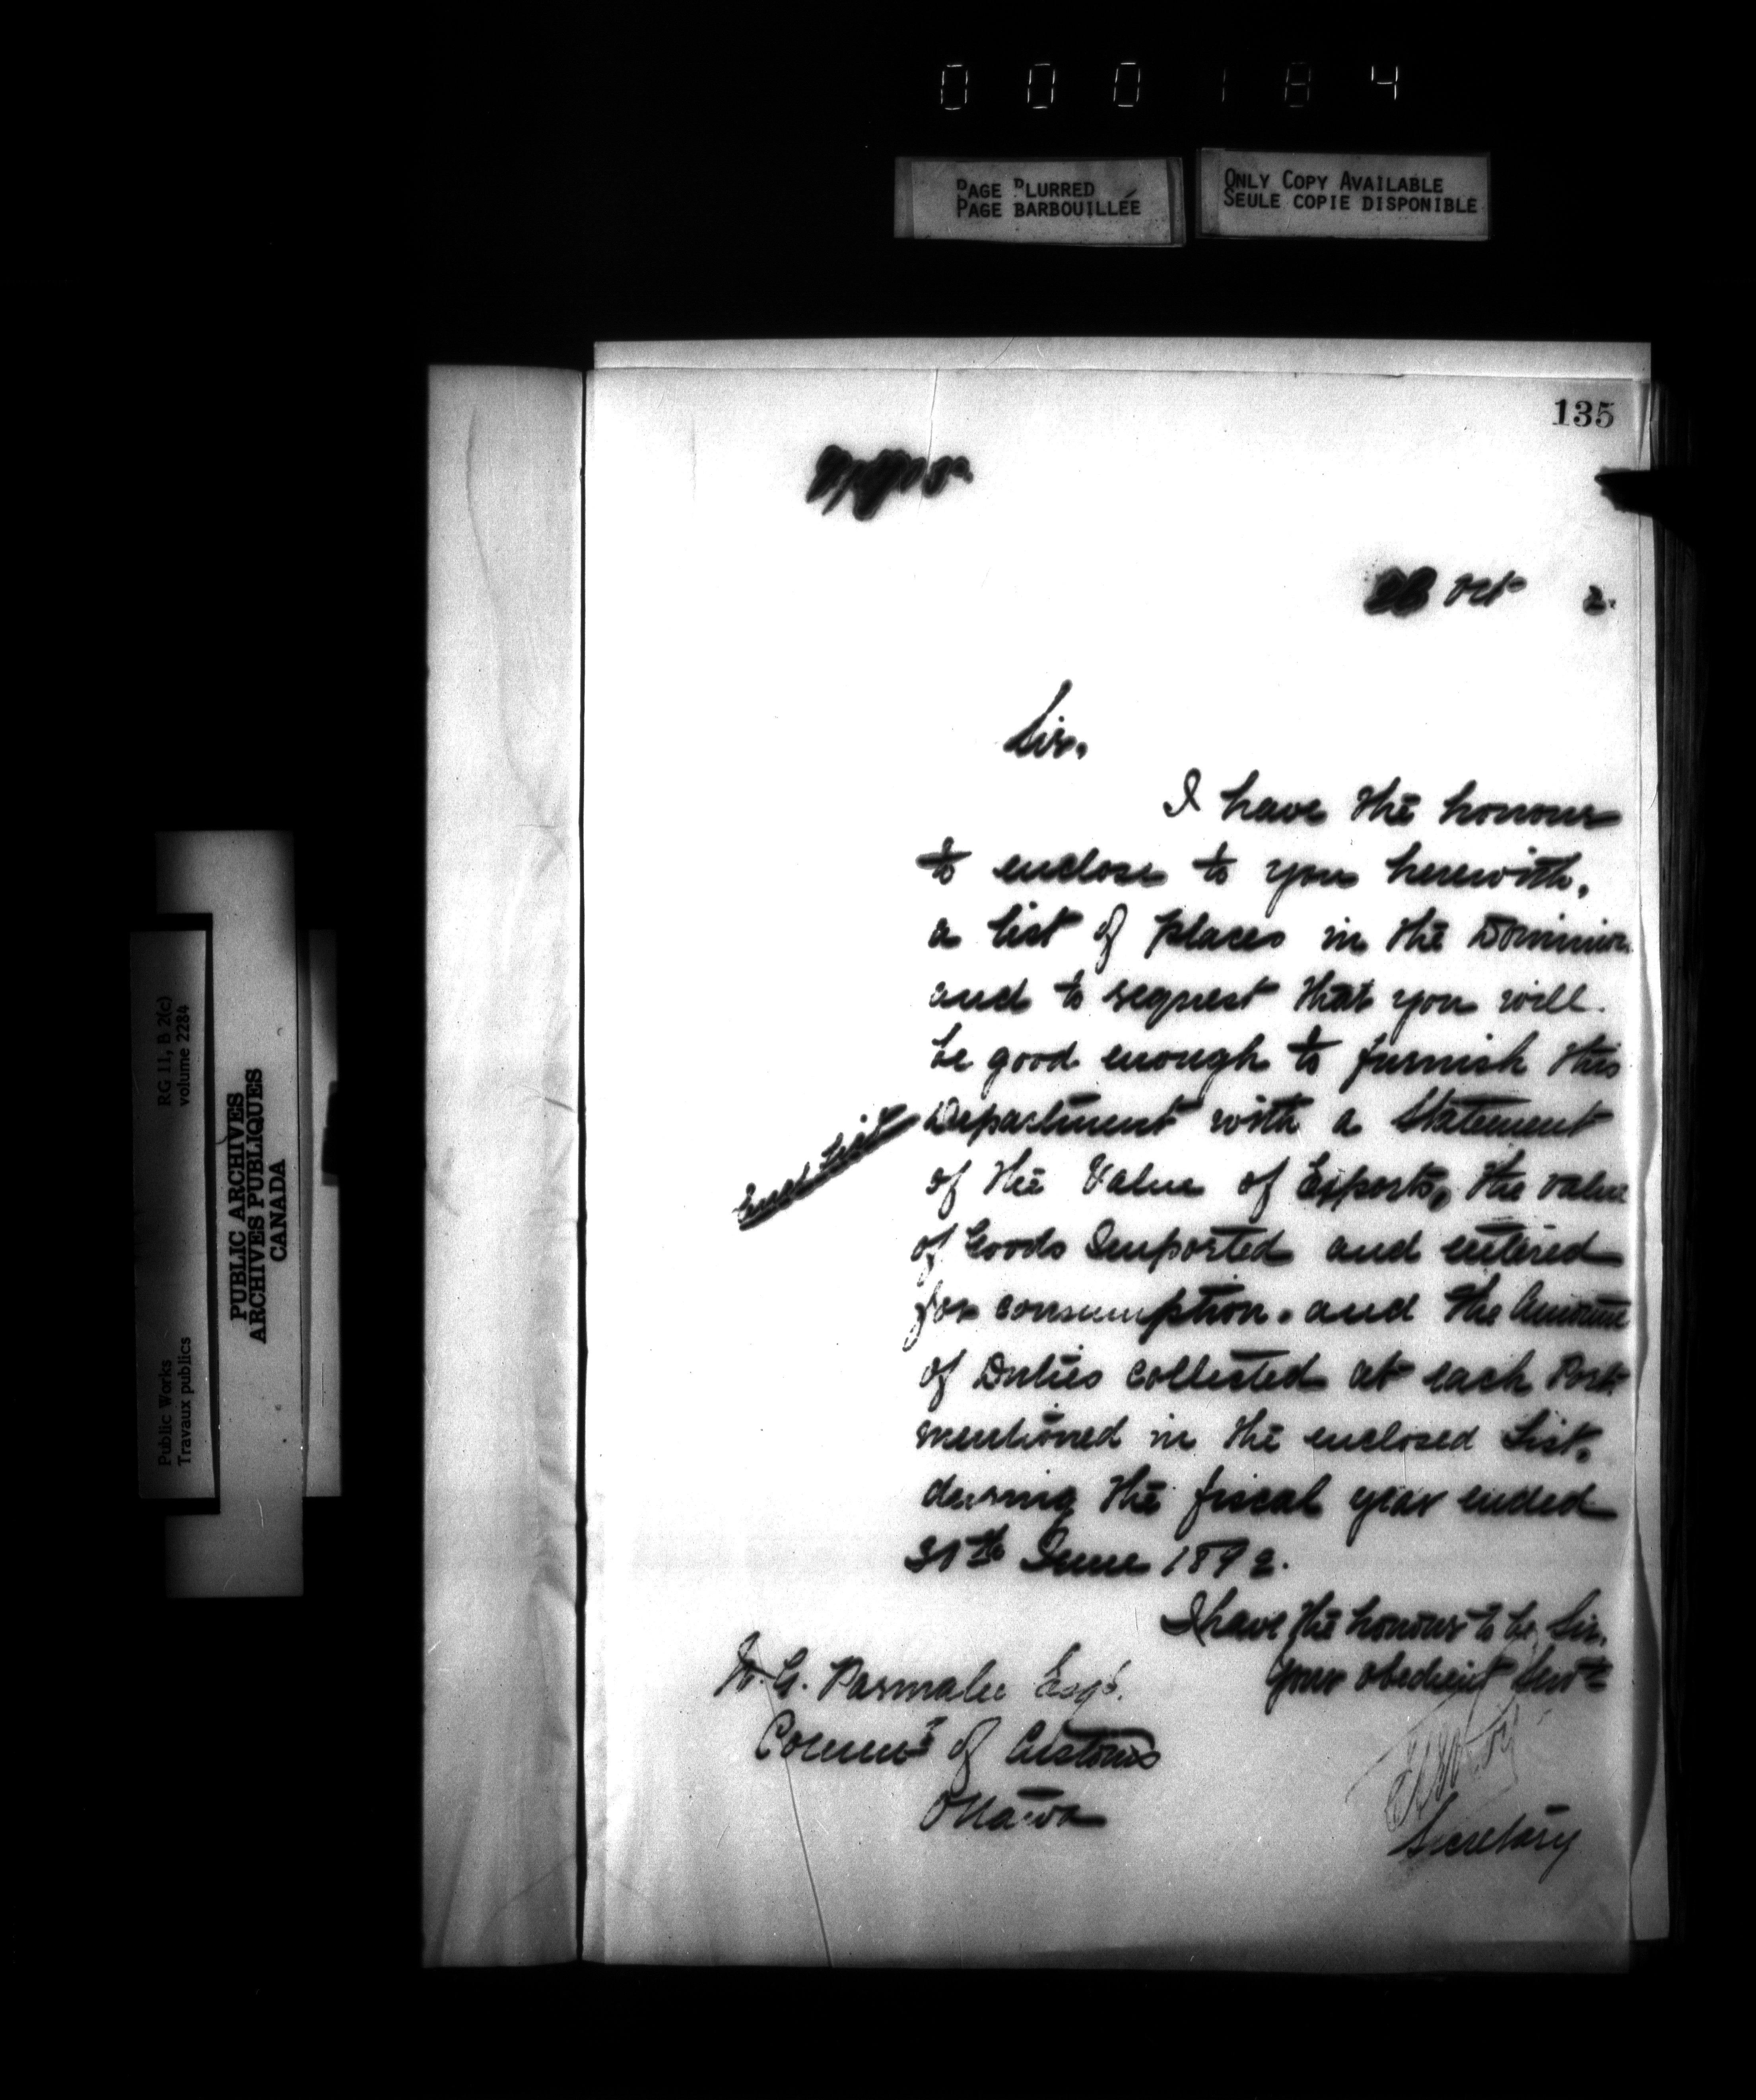 000184
PAGE BLURRED
PAGE BARBOUILLÉE
ONLY COPY AVAILABLE
SEULE COPIE DISPONIBLE
135
Oct 2.
Sir,
I have the honour
to enclose to you herewith,
a list of places in the Dominion
and to request that you will
be good enough to furnish this
Encl. List
Department with a Statement
of the Value of Exports, the value
of Goods Imported and entered
for consumption, and the Amount
of Duties collected at each Port
mentioned in the enclosed List,
during the fiscal year ended
June 1892.
I have the honour to be, Sir,
Your obedient Servt
W. G. Parmalee Esqr.
Commr of Customs
Ottawa
Secretary
RG 11, B 2(c)
volume 2284
PUBLIC ARCHIVES
ARCHIVES PUBLIQUES
CANADA
Public Works
Travaux publics